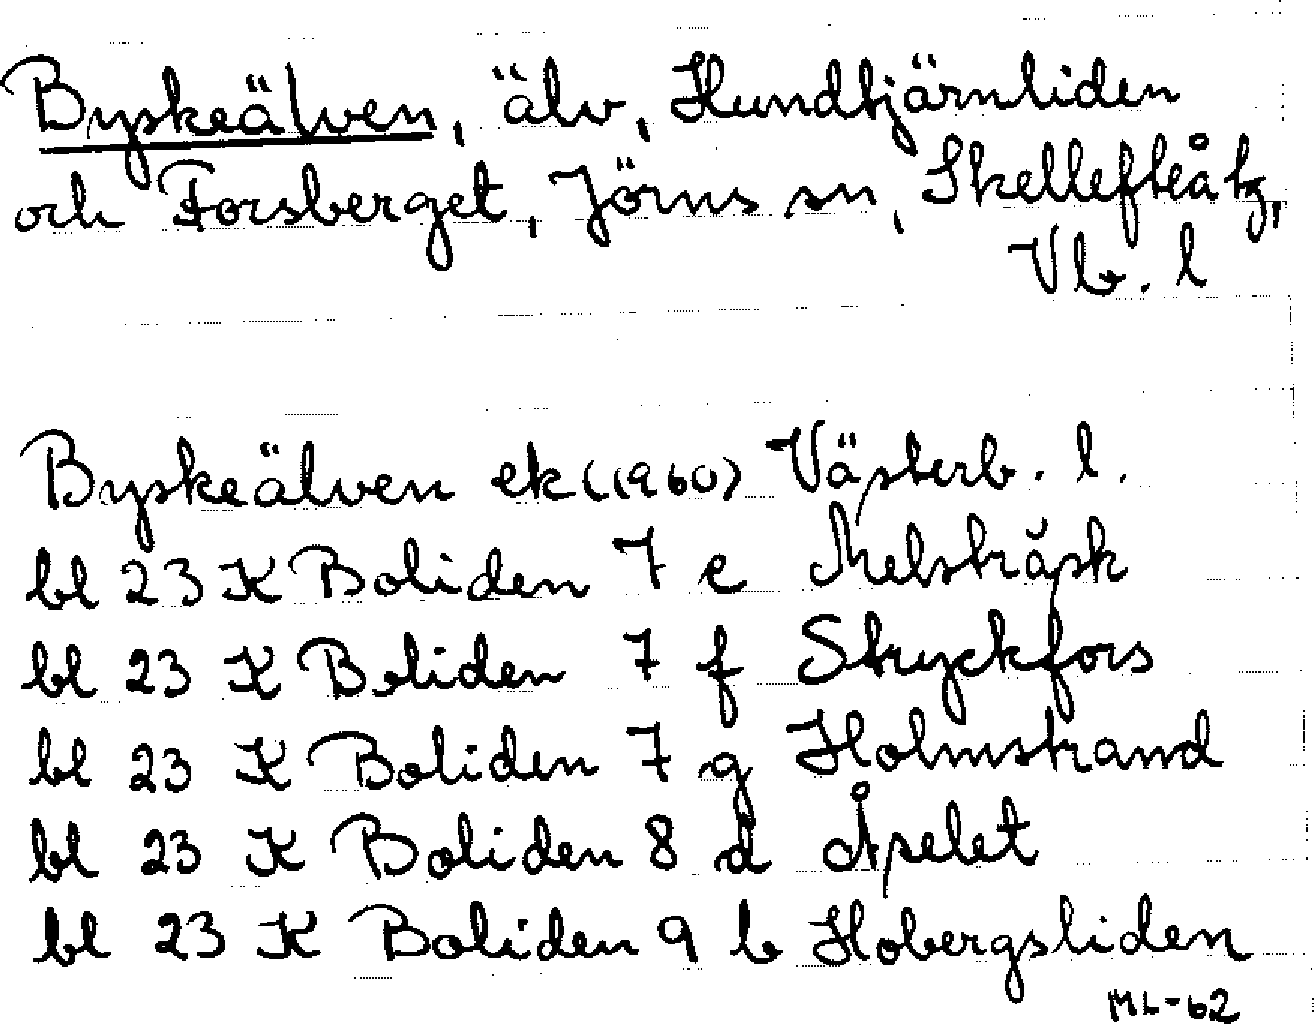 Byskeälven, älv, Hundtjärnliden
och Forsberget, Jörns sn, Skellefteå tg,
Vb. l
Byskeälven ek (1960) Västerb. l.
bl 23 K Boliden 7 e Melsträsk
bl 23 K Boliden 7 f Stryckfors
bl 23 K Boliden 7 g Holmstrand
bl 23 K Boliden 8 d Åselet
bl 23 K Boliden 9 b Hobergsliden
ML-62